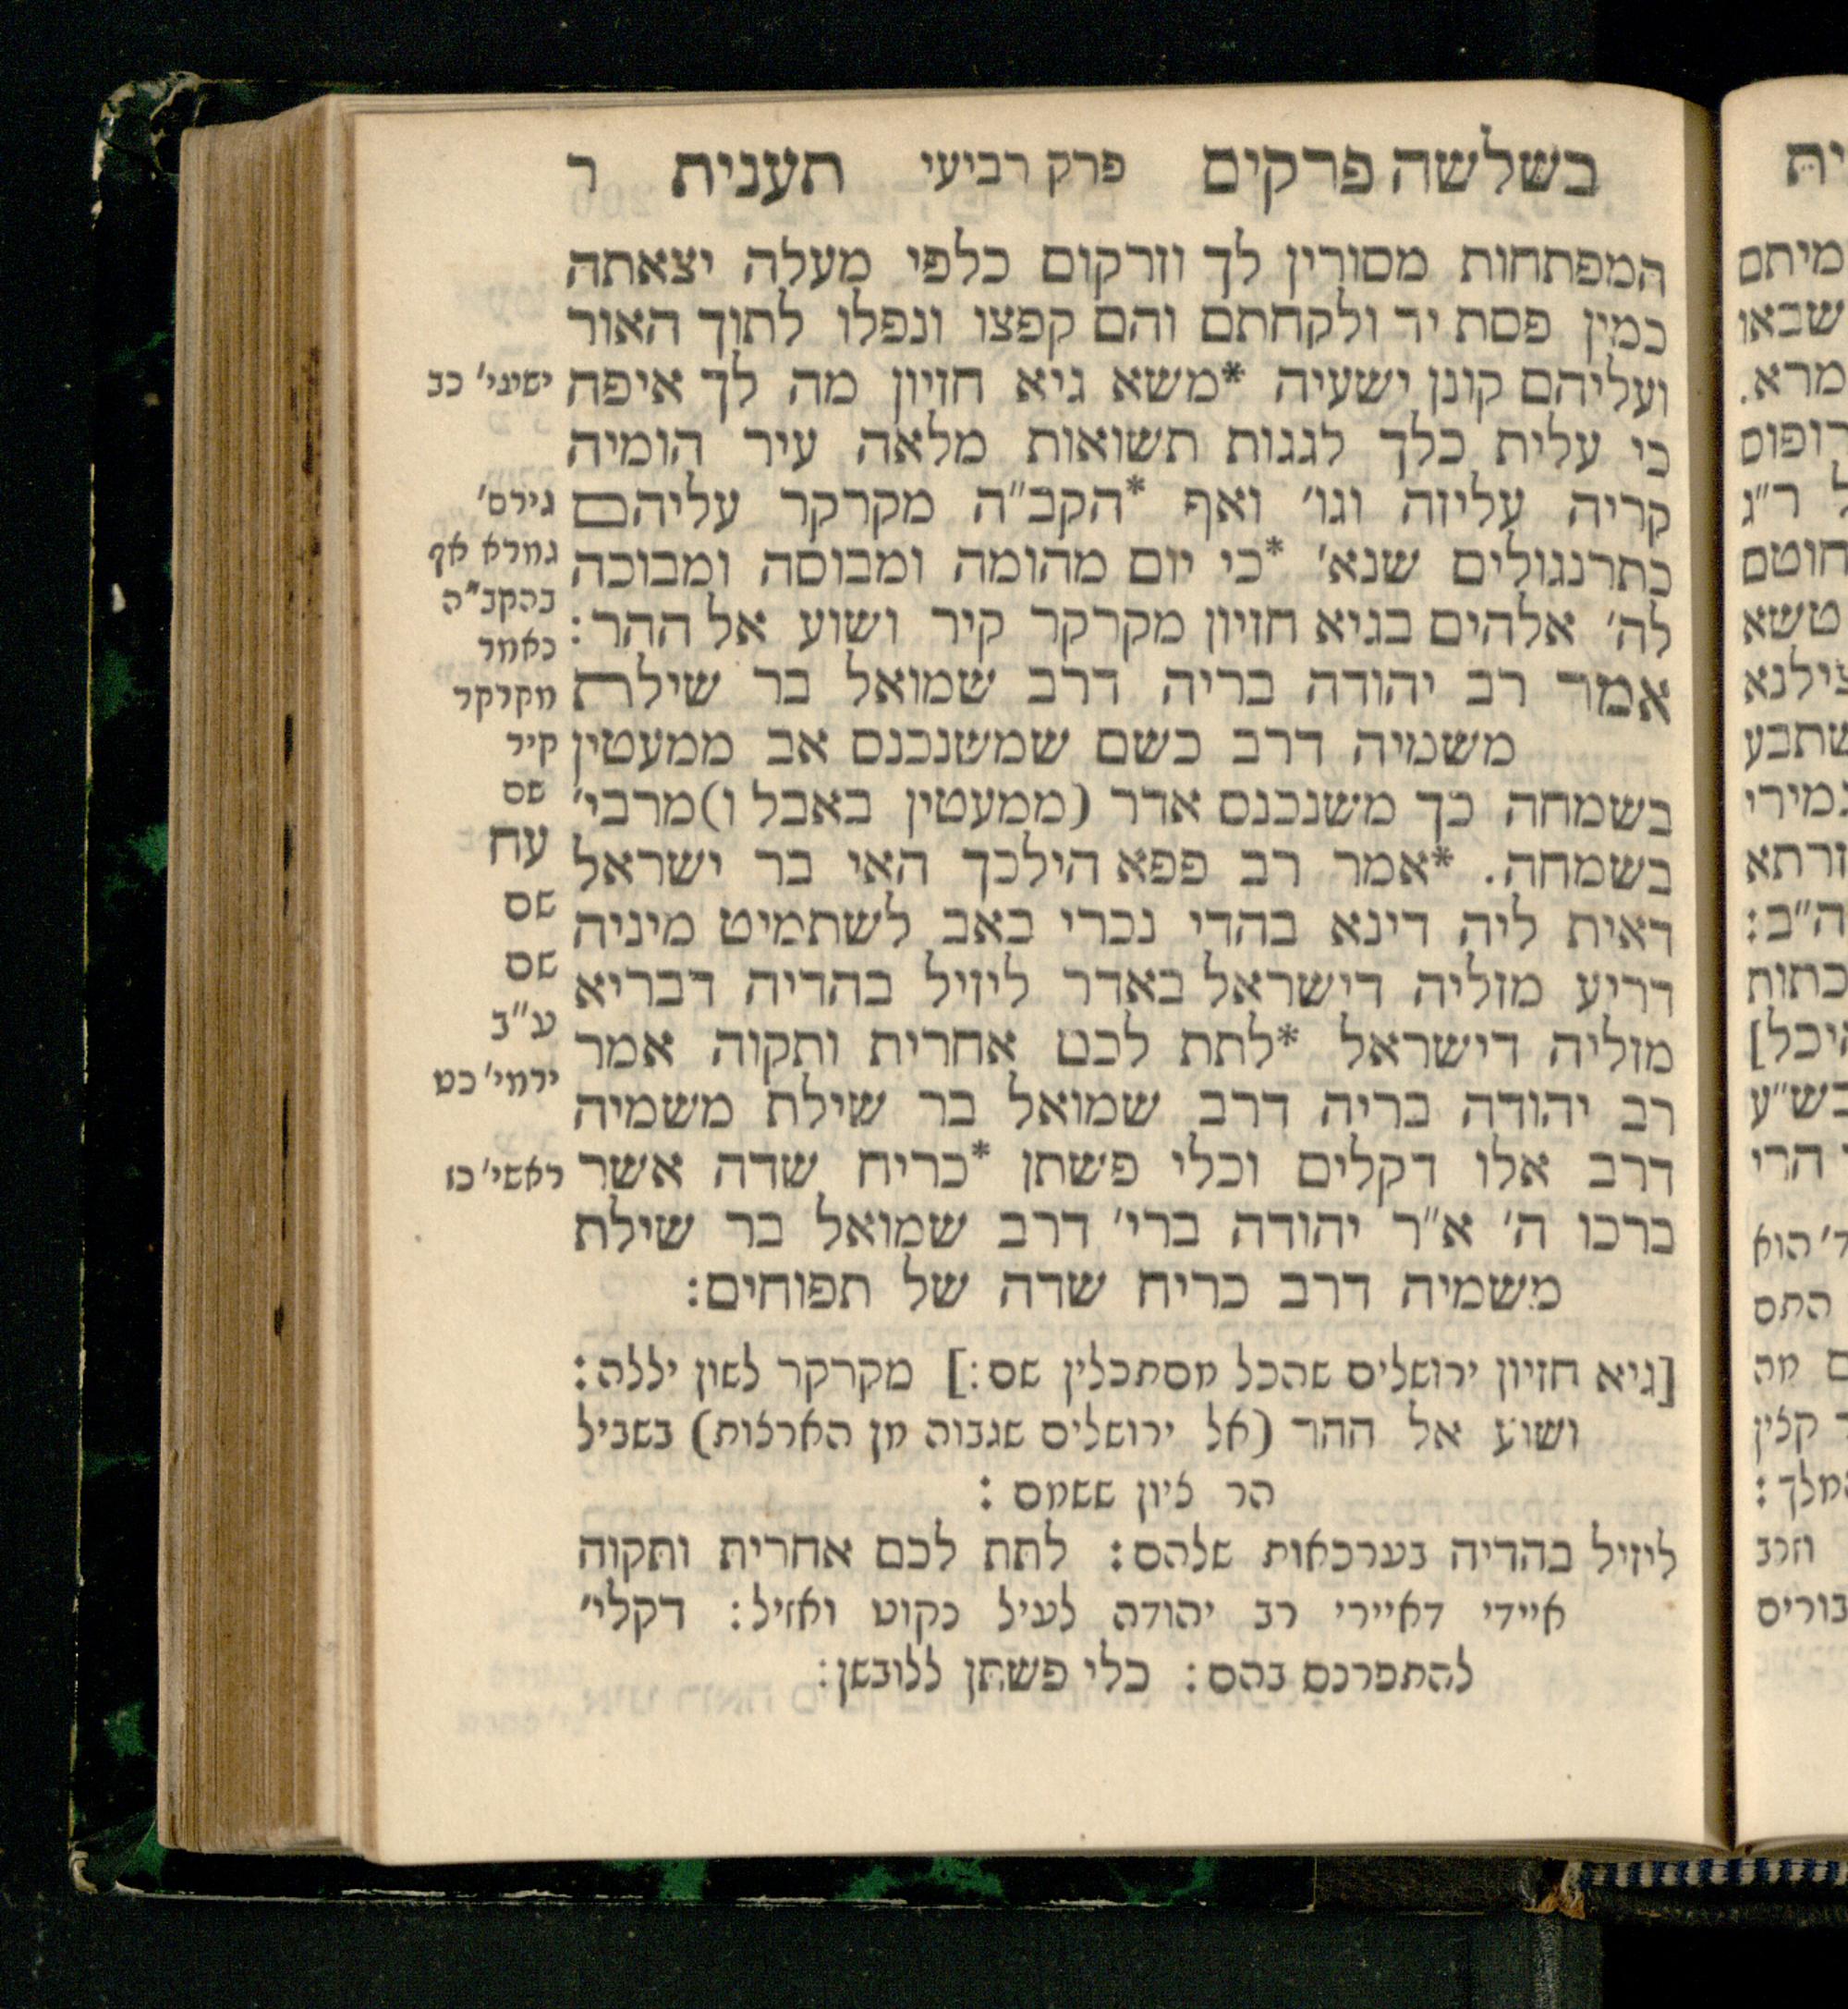 בשלשה פרקים פרק רביעי תענית ר
המפתחות מסורין לך וזרקום כלפי מעלה יצאתה
כמין פסת יד ולקחתם והם קפצו ונפלו לתוך האור
ועליהם קונן ישעיה *משא גיא חזיון מה לך איפה
כי עלית כלך לגגות תשואות מלאה עיר הומיה
קריה עליזה וגו׳ ואף *הקב״ה מקרקר עליהם
כתרנגולים שנא׳ *כי יום מהומה ומבוסה ומבוכה
לה׳ אלהים בגיא חזיון מקרקר קיר ושוע אל ההר:
אמר רב יהודה בריה דרב שמואל בר שילת
משמיה דרב כשם שמשנכנס אב ממעטין
בשמחה כך משנכנס אדר (ממעטין באבל ו)מרבי׳
בשמחה. *אמר רב פפא הילכך האי בר ישראל
דאית ליה דינא בהדי נכרי באב לשתמיט מיניה
דריע מזליה דישראל באדר ליזיל בהדיה דבריא
מזליה דישראל *לתת לכם אחרית ותקוה אמר
רב יהודה בריה דרב שמואל בר שילת משמיה
דרב אלו דקלים וכלי פשתן *כריח שדה אשר
ברכו ה׳ א״ר יהודה ברי׳ דרב שמואל בר שילת
משמיה דרב כריח שדה של תפוחים:
[גיא חזיון ירושלים שהכל מסתכלין שם:] מקרקר לשון יללה:
ושוע אל ההר (אל ירושלים שגבוה מן הארצות) בשביל
הר ציון ששמם:
ליזיל בהדיה בערכאות שלהם: לתת לכם אחרית ותקוה
איידי דאיירי רב יהודה לעיל נקוט ואזיל: דקלי׳
להתפרנס בהם: כלי פשתן ללובשן:
ישעי׳ כב
גירס׳
גמרא אף
בהקב״ה
כאמר
מקרקר
קיר
שם
עח
שם
שם
ע״ב
ירמי׳ כט
ראשי׳ כז
ית
מיתם
שבאו
מרא.
רופוס
ל ר״ג
חוטם
טשא
צילנא
שתבע
גמירי
וזרתא
ה״ב:
כתות
היכל]
בש״ע
הרי
ד׳ הוא
התם
ם מה
קצין
המלך:
וזרב
בורים